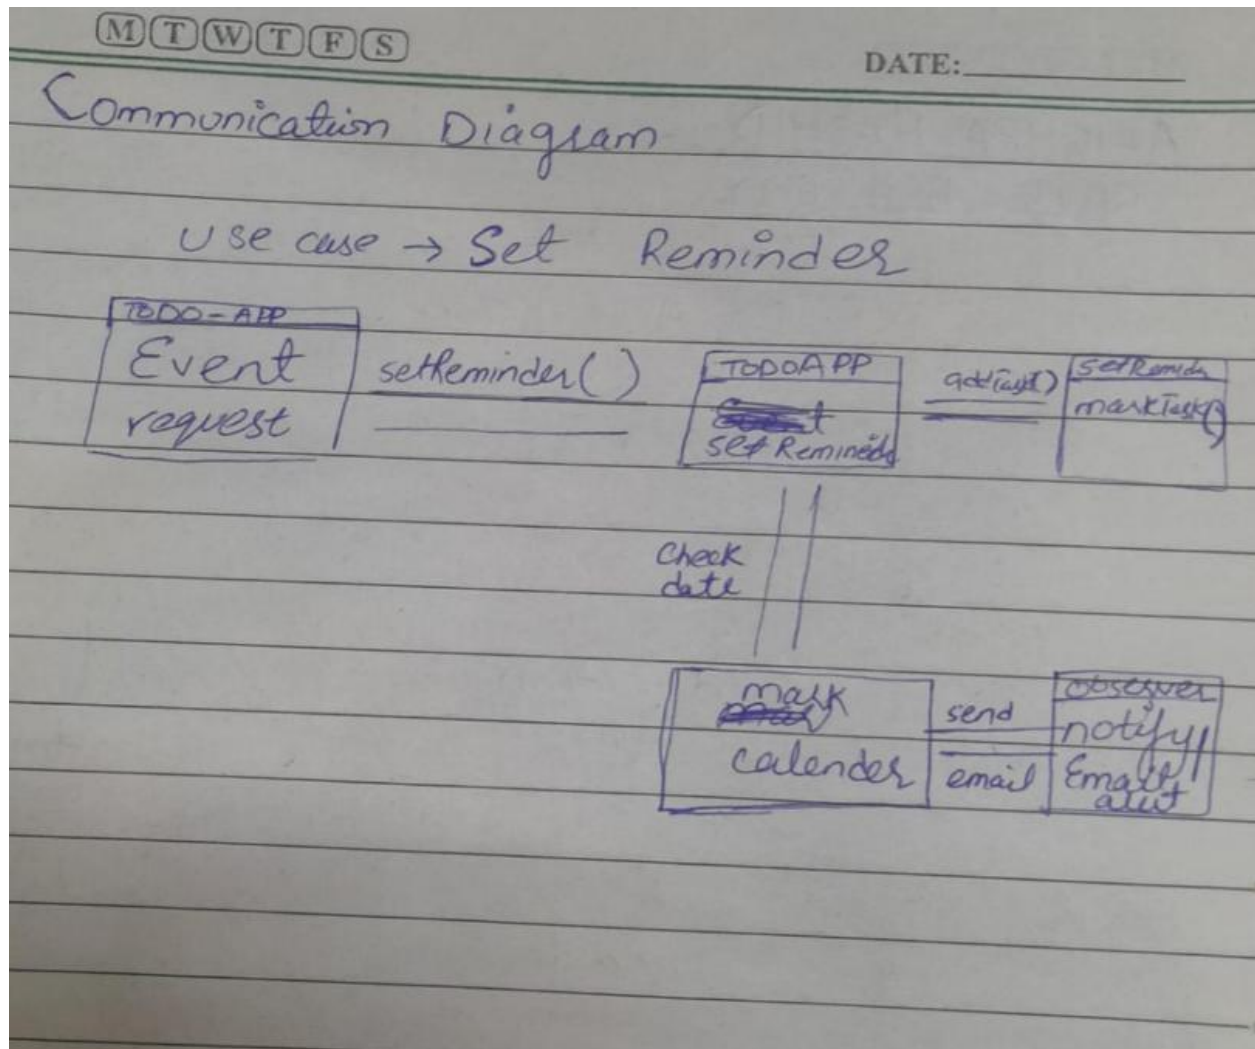 M T W T F S
DATE:
Communication Diagram
use case → Set Reminder
TODO-APP
Event
request
setReminder()
TODOAPP
set Reminder
addTask()
setRemider
markTask()
Check
date
mark
calender
send
email
observer
notify
Email
alert